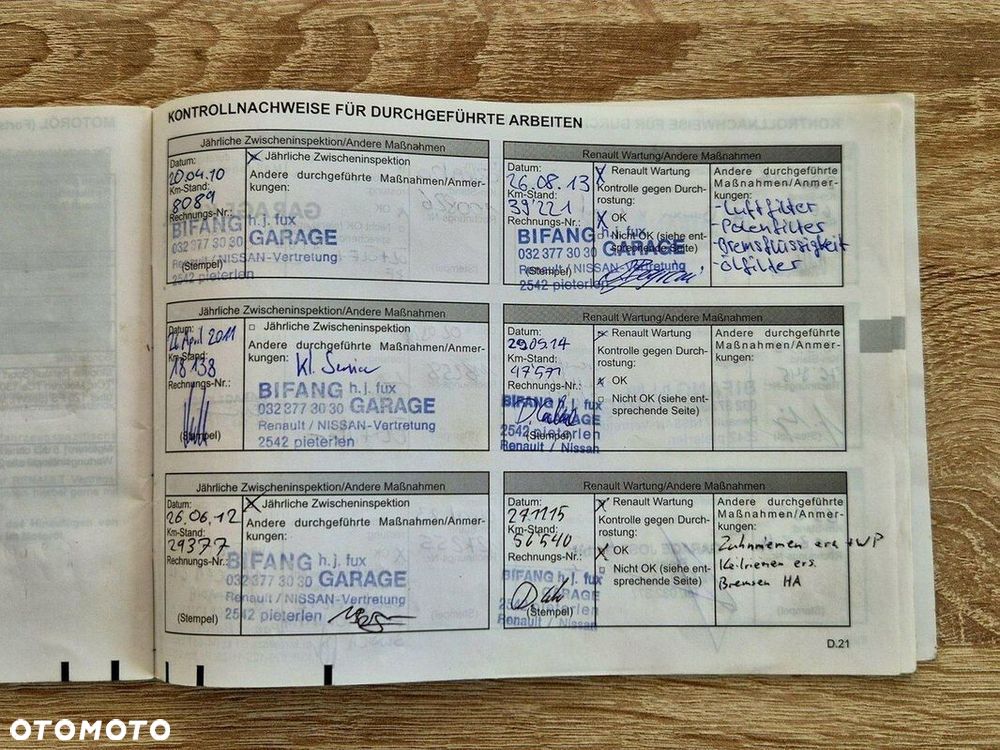 KONTROLLNACHWEISE FÜR DURCHGEFÜHRTE ARBEITEN
Jährliche Zwischeninspektion/Andere Maßnahmen
Datum:
20.04.10
Km-Stand:
8089
Rechnungs-Nr.:
(Stempel)
Jährliche Zwischeninspektion
Andere durchgeführte Maßnahmen/Anmer-
kungen:
BIFANG h.j. fux
032 377 30 30 GARAGE
Renault / NISSAN-Vertretung
2542 pieterlen
Jährliche Zwischeninspektion/Andere Maßnahmen
Datum:
April 2011
Km-Stand:
18138
Rechnungs-Nr.:
(Stempel)
Jährliche Zwischeninspektion
Andere durchgeführte Maßnahmen/Anmer-
kungen:
Kl. Service
BIFANG h.j. fux
032 377 30 30 GARAGE
Renault / NISSAN-Vertretung
2542 pieterlen
Jährliche Zwischeninspektion/Andere Maßnahmen
Datum:
26.06.12
Km-Stand:
29377
Rechnungs-Nr.:
(Stempel)
Jährliche Zwischeninspektion
Andere durchgeführte Maßnahmen/Anmer-
kungen:
BIFANG h.j. fux
032 377 30 30 GARAGE
Renault / NISSAN-Vertretung
2542 pieterlen
Renault Wartung/Andere Maßnahmen
Datum:
26.08.13
Km-Stand:
39'221
Rechnungs-Nr.:
(Stempel)
Renault Wartung
Kontrolle gegen Durch-
rostung:
OK
Nicht OK (siehe ent-
sprechende Seite)
BIFANG h.j. fux
032 377 30 30 GARAGE
Renault / NISSAN-Vertretung
2542 pieterlen
Andere durchgeführte
Maßnahmen/Anmer-
kungen:
-Luftfilter
-Polenfilter
-Bremsflüssigkeit
-Ölfilter
Renault Wartung/Andere Maßnahmen
Datum:
29.05.14
Km-Stand:
47571
Rechnungs-Nr.:
(Stempel)
Renault Wartung
Kontrolle gegen Durch-
rostung:
OK
Nicht OK (siehe ent-
sprechende Seite)
BIFANG h.j. fux
GARAGE
2542
Renault / Nissan
Andere durchgeführte
Maßnahmen/Anmer-
kungen:
Renault Wartung/Andere Maßnahmen
Datum:
27.11.15
Km-Stand:
56540
Rechnungs-Nr.:
(Stempel)
Renault Wartung
Kontrolle gegen Durch-
rostung:
OK
Nicht OK (siehe ent-
sprechende Seite)
BIFANG h.j. fux
GARAGE
Renault / Nissan
Andere durchgeführte
Maßnahmen/Anmer-
kungen:
Zahnriemen ers + WP
Keilriemen ers.
Bremsen HA
D.21
OTOMOTO